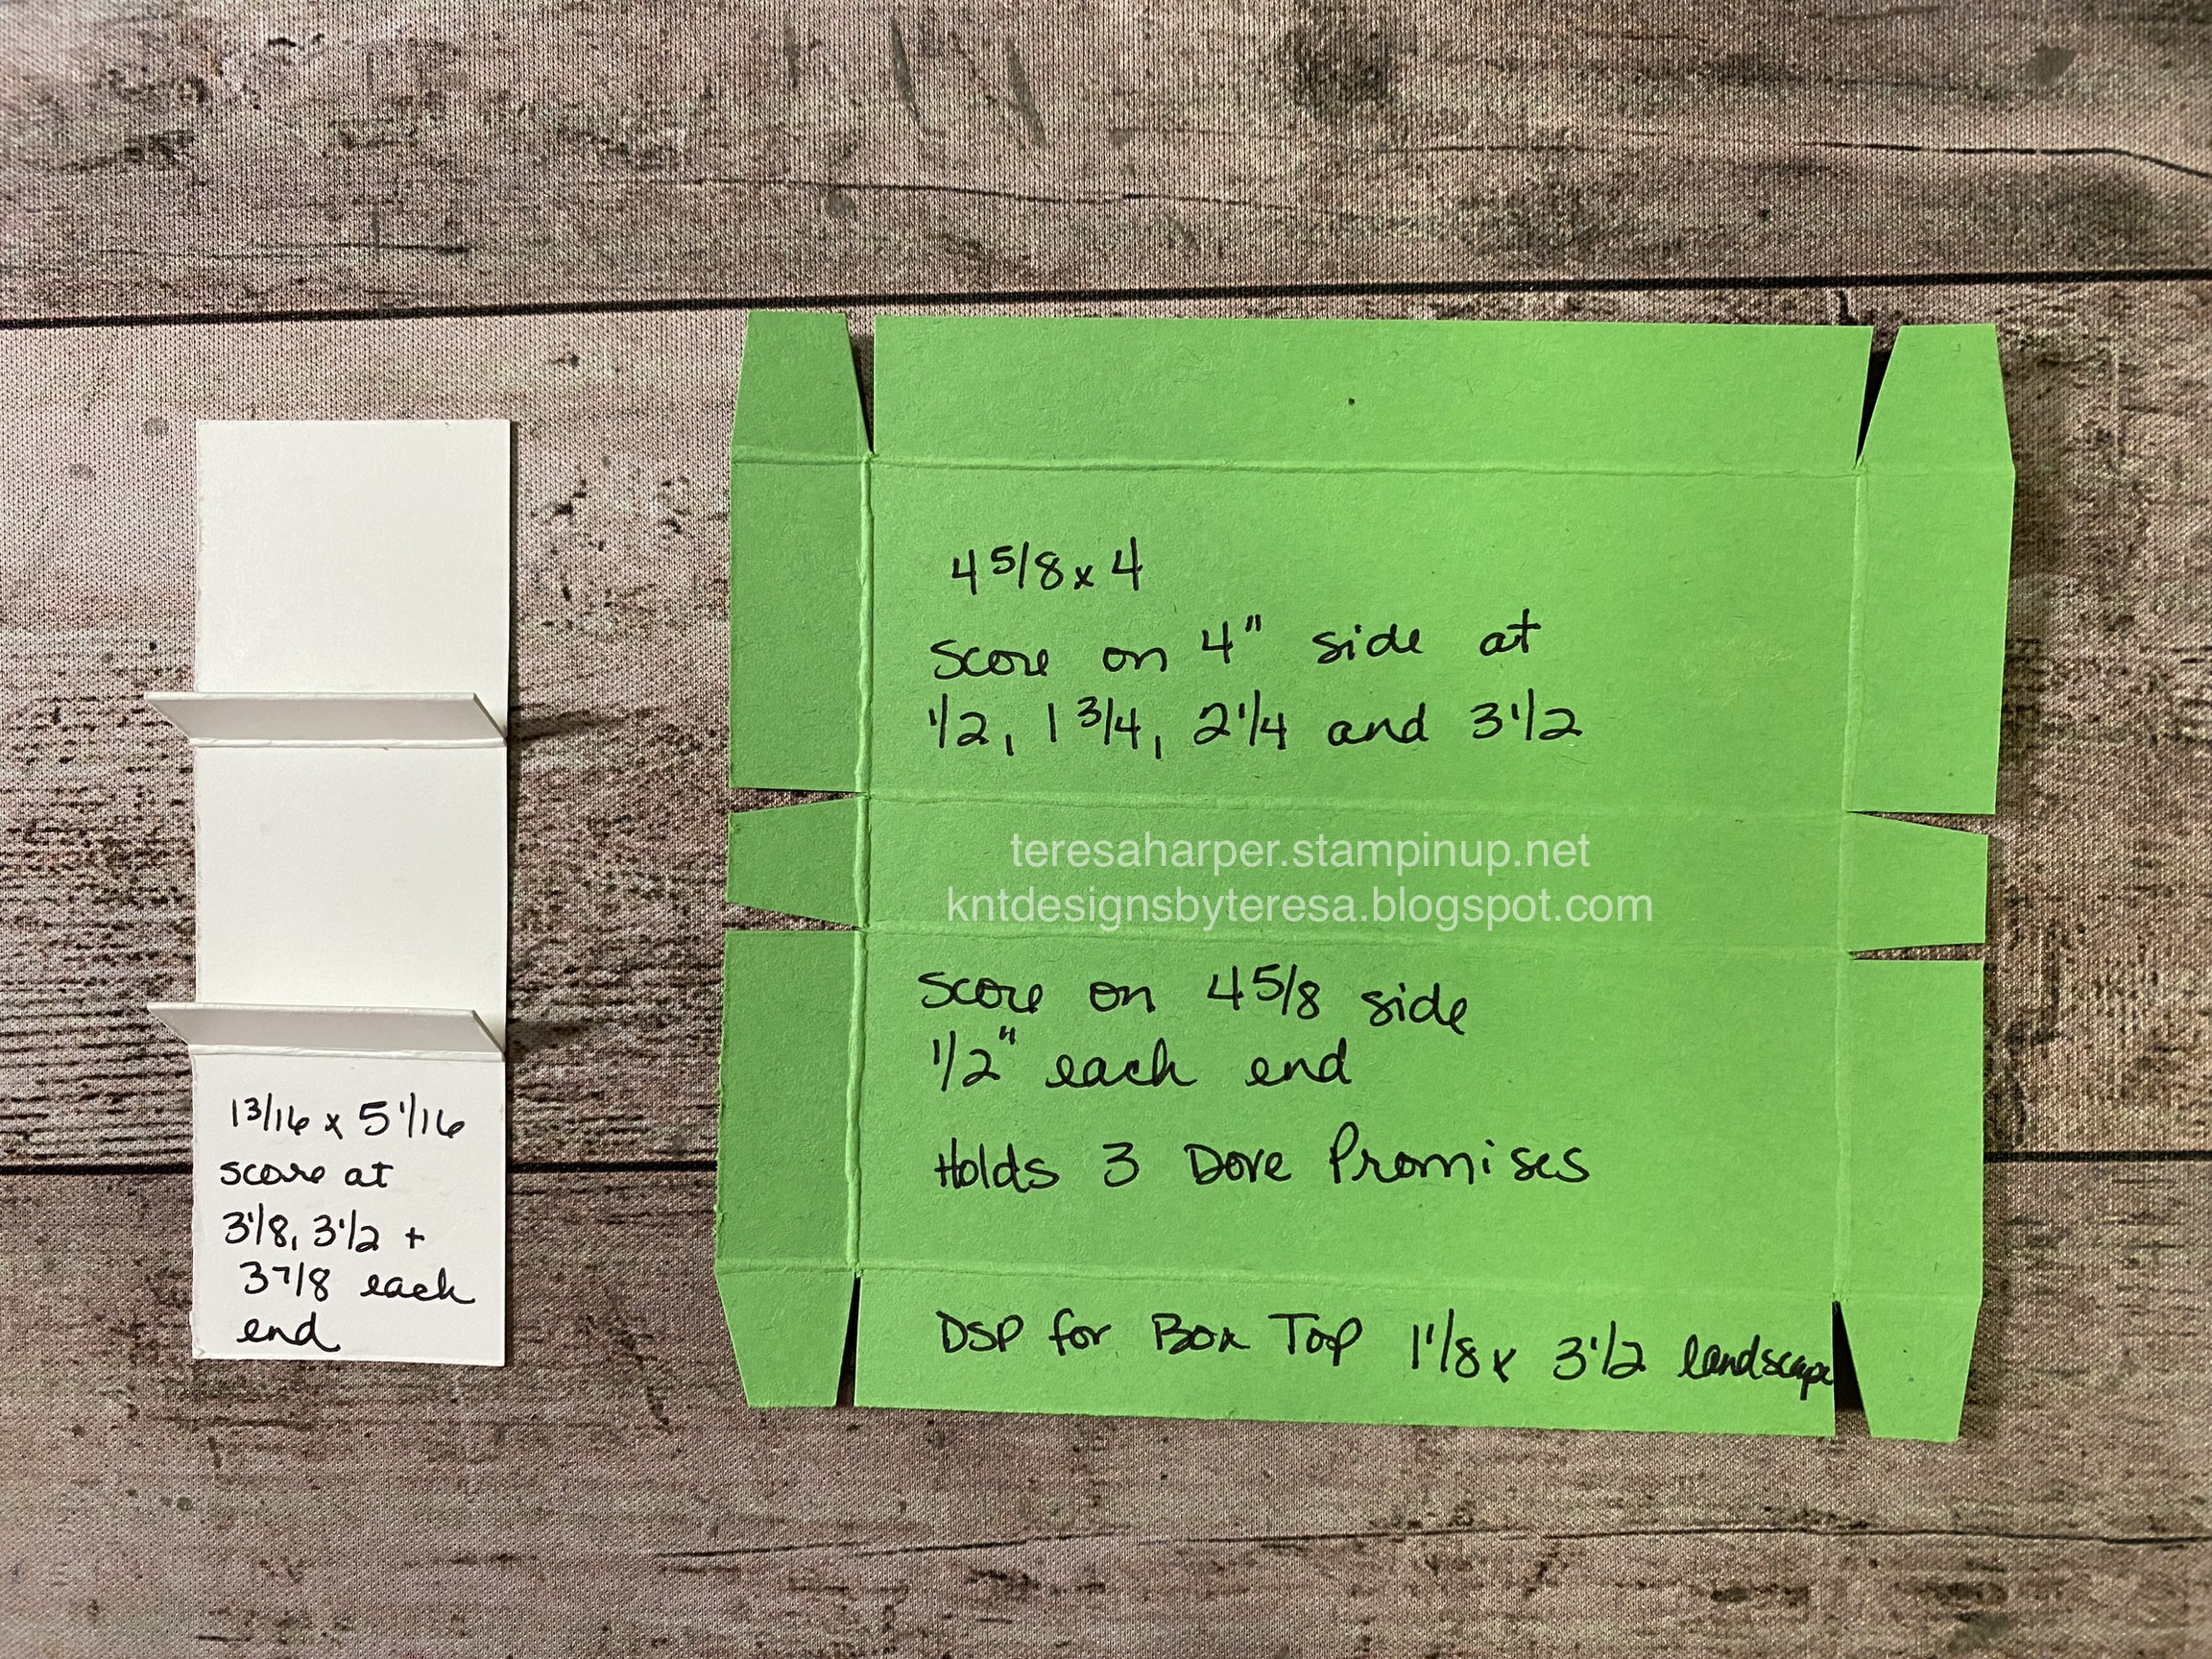 1 3/16 x 5 1/16
score at
3 1/8, 3 1/2 +
3 7/8 each
end
4 5/8 x 4
Score on 4" side at
1/2, 1 3/4, 2 1/4 and 3 1/2
teresaharper.stampinup.net
kntdesignsbyteresa.blogspot.com
Score on 4 5/8 side
1/2" each end
Holds 3 Dove Promises
DSP for Box Top 1 1/8 x 3 1/2 landscape